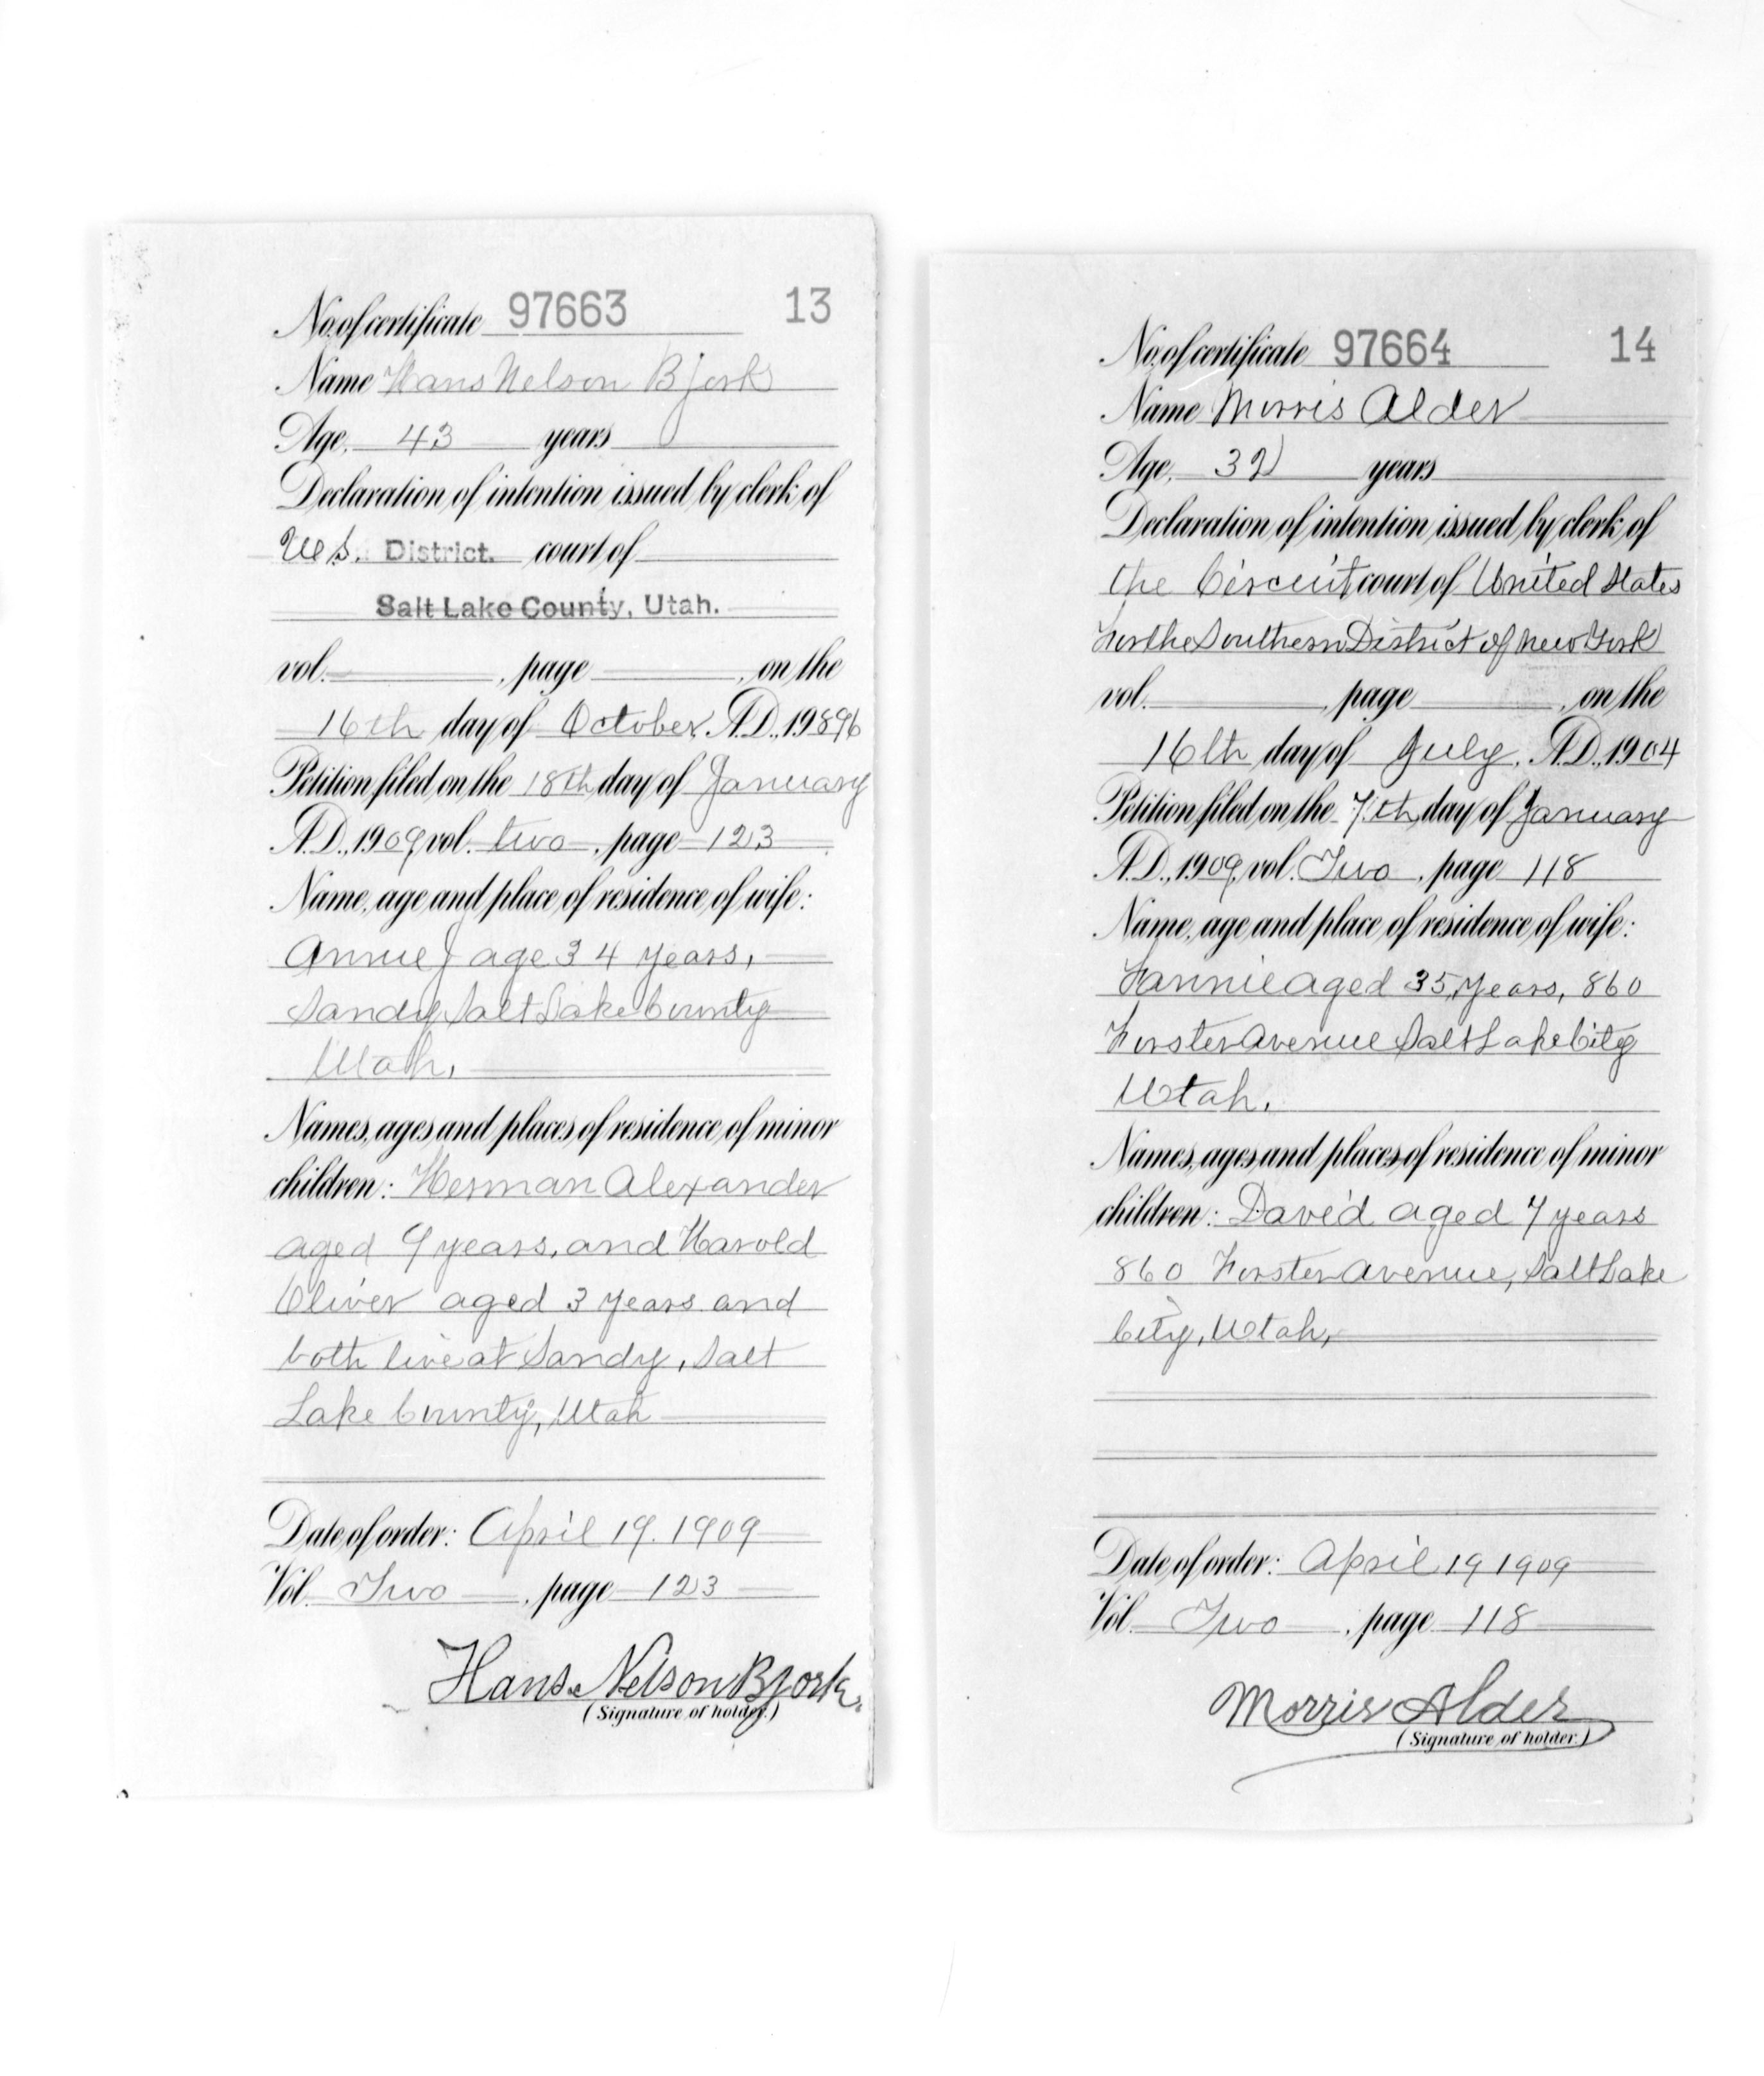 No. of certificate 97663 13
Name Hans Nelson Bjork
Age, 43 years
Declaration of intention issued by clerk of
U.S. District. court of
Salt Lake County, Utah.
vol. , page , on the
16th day of October, A.D., 19896
Petition filed on the 18th day of January
A.D., 1909, vol. two, page 123
Name, age and place of residence of wife:
Annie J age 34 years,
Sandy, Salt Lake County
Utah,
Names, ages and places of residence of minor
children: Herman Alexander
aged 9 years, and Harold
Oliver aged 3 years and
both live at Sandy, Salt
Lake County, Utah
Date of order: April 19. 1909
Vol. Two, page 123
Hans Nelson Bjork.
(Signature of holder.)
No. of certificate 97664 14
Name Morris Alder
Age, 32 years
Declaration of intention issued by clerk of
the Circuit court of United States
For the Southern District of New York
vol. , page , on the
16th day of July, A.D., 1904
Petition filed on the 7th day of January
A.D., 1909, vol. Two, page 118
Name, age and place of residence of wife:
Fannie aged 35, years, 860
Forster Avenue Salt Lake City
Utah.
Names, ages and places of residence of minor
children: David aged 7 years
860 Forster Avenue, Salt Lake
City, Utah,
Date of order: April 19 1909
Vol. Two, page 118
Morris Alder
(Signature of holder.)